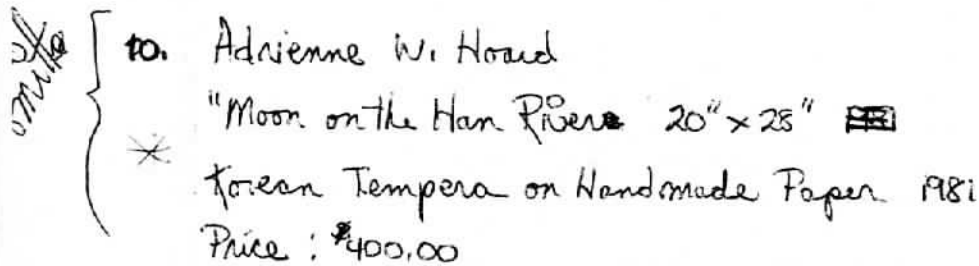 omitted
10. Adrienne W. Hoard
"Moon on the Han River 20" x 28"
Korean Tempera on Handmade Paper 1981
Price: $400.00